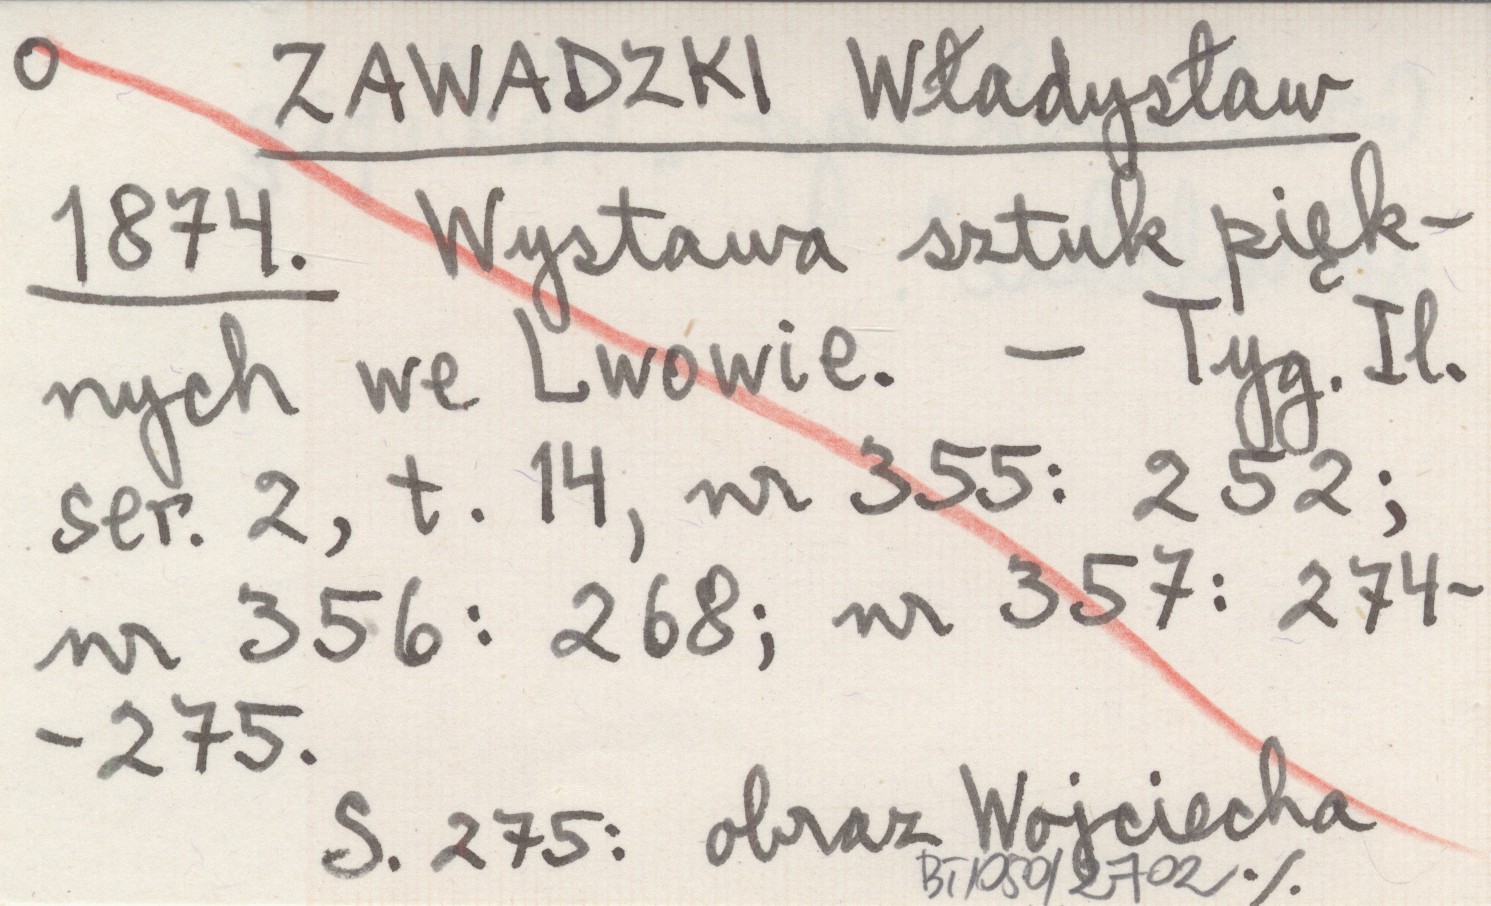 o ZAWADZKI Władysław
1874. Wystawa sztuk pięk-
nych we Lwowie. — Tyg. Il.
ser. 2, t. 14, nr 355: 252;
nr 356: 268; nr 357: 274-
-275.
S. 275: obraz Wojciecha
BT/050/2702 ./.